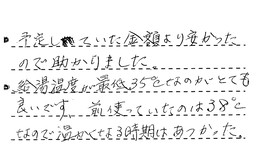 ・予定していた金額より安かった
ので助かりました。
・給湯温度が最低35℃なのがとても
良いです。前使っていたのは38℃
なので温かくなる時期はあつかった。